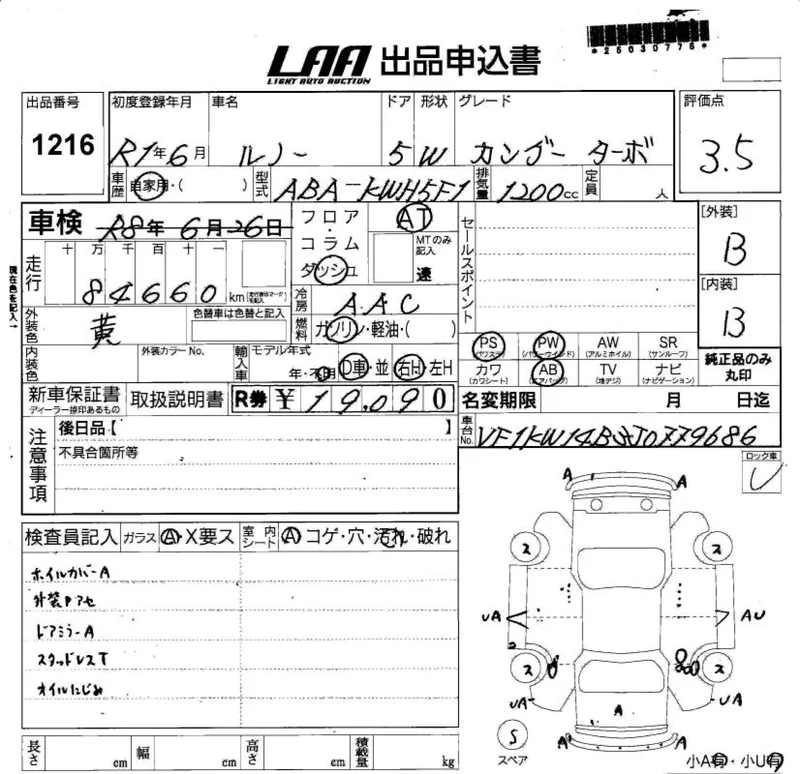 LAA 出品申込書
LIGHT AUTO AUCTION
*25030775*
出品番号 1216
初度登録年月 R1年6月
車名 ルノー
ドア 5 形状 W
グレード カングー ターボ
評価点 3.5
車歴 自家用・( )
型式 ABA-KWH5F1
排気量 1200cc
定員 人
車検 R8年 6月26日
フロア・コラム ダッシュ
AT
MTのみ記入 速
セールスポイント
[外装] B
[内装] B
走行 十 万 千 百 十 一
84660 km
現在色を記入→
冷房 AAC
燃料 ガソリン・軽油・( )
外装色 黄
色替車は色替と記入
内装色
外装カラーNo.
輸入車 モデル年式 年・不明
D車・並 右H・左H
PS (パワステ) PW (パワーウインド) AW (アルミホイル) SR (サンルーフ)
カワ (カワシート) AB (エアバッグ) TV (地デジ) ナビ (ナビゲーション)
純正品のみ丸印
新車保証書
ディーラー捺印あるもの
取扱説明書
R券 ¥ 19,090
名変期限 月 日迄
車台No.
注意事項
後日品【 】
不具合箇所等
ロック車
レ
検査員記入 ガラス A・X要ス 室内シート A・コゲ・穴・汚れ・破れ
ホイルカバーA
外装Pアセ
ドアミラーA
スタッドレスT
オイルにじみ
A A
ス ス
UA AU
ス ス
UA A UA
A A
S
スペア
小A有・小U有
長さ cm 幅 cm 高さ cm 積載量 kg